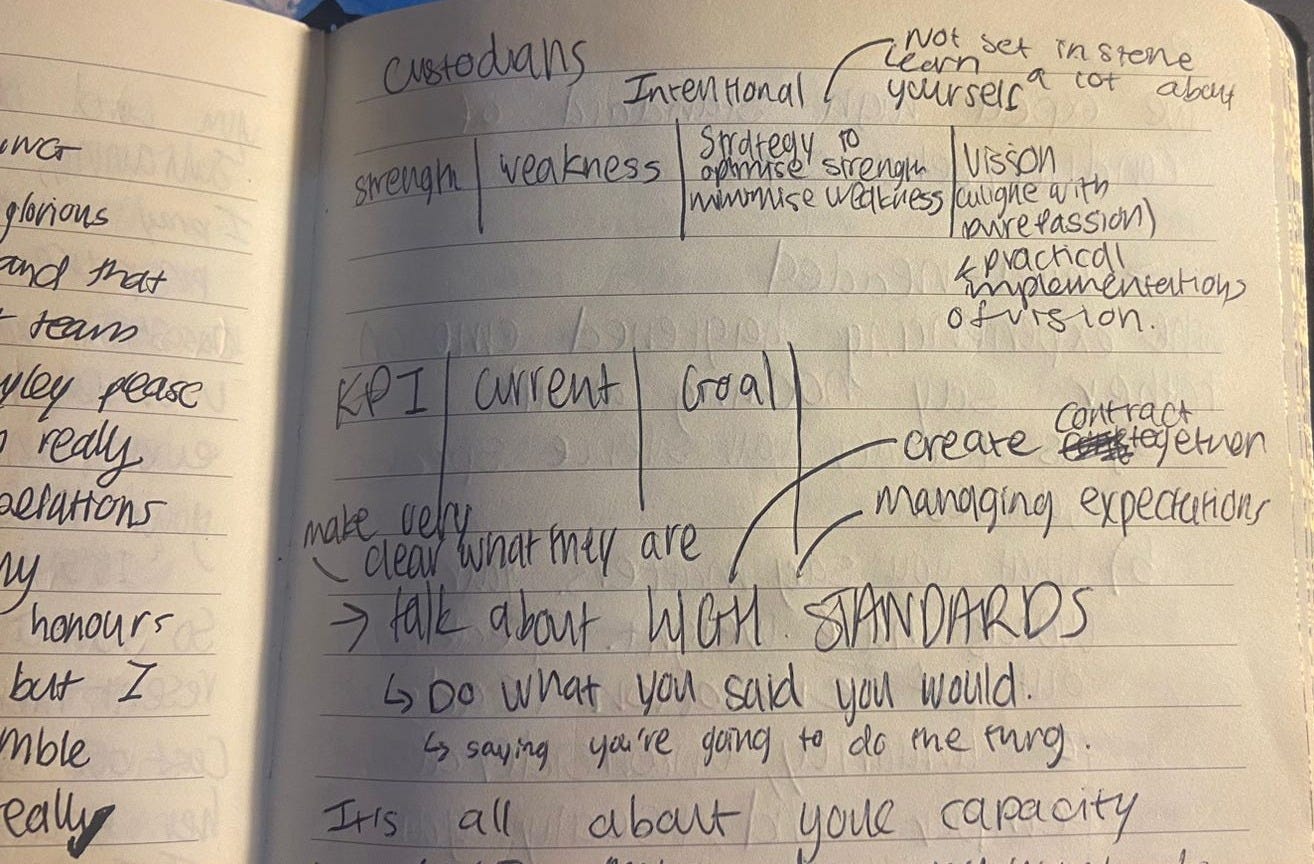 wG
glorious
and that
team
yley please
really
erations
ny
honours
but I
mble
eally
Custodians
Not set in stone
Intentional
learn a lot about
yourself
strength | weakness | Strategy to optimise strength minimise weakness | Visson (aligne with pure passion)
& practical
implementations
of vision.
KPI | current | Goal
create contract together
managing expectations
make very
clear what they are
→ talk about HIGH STANDARDS
↳ Do what you said you would.
↳ saying you're going to do the thing.
It's all about your capacity